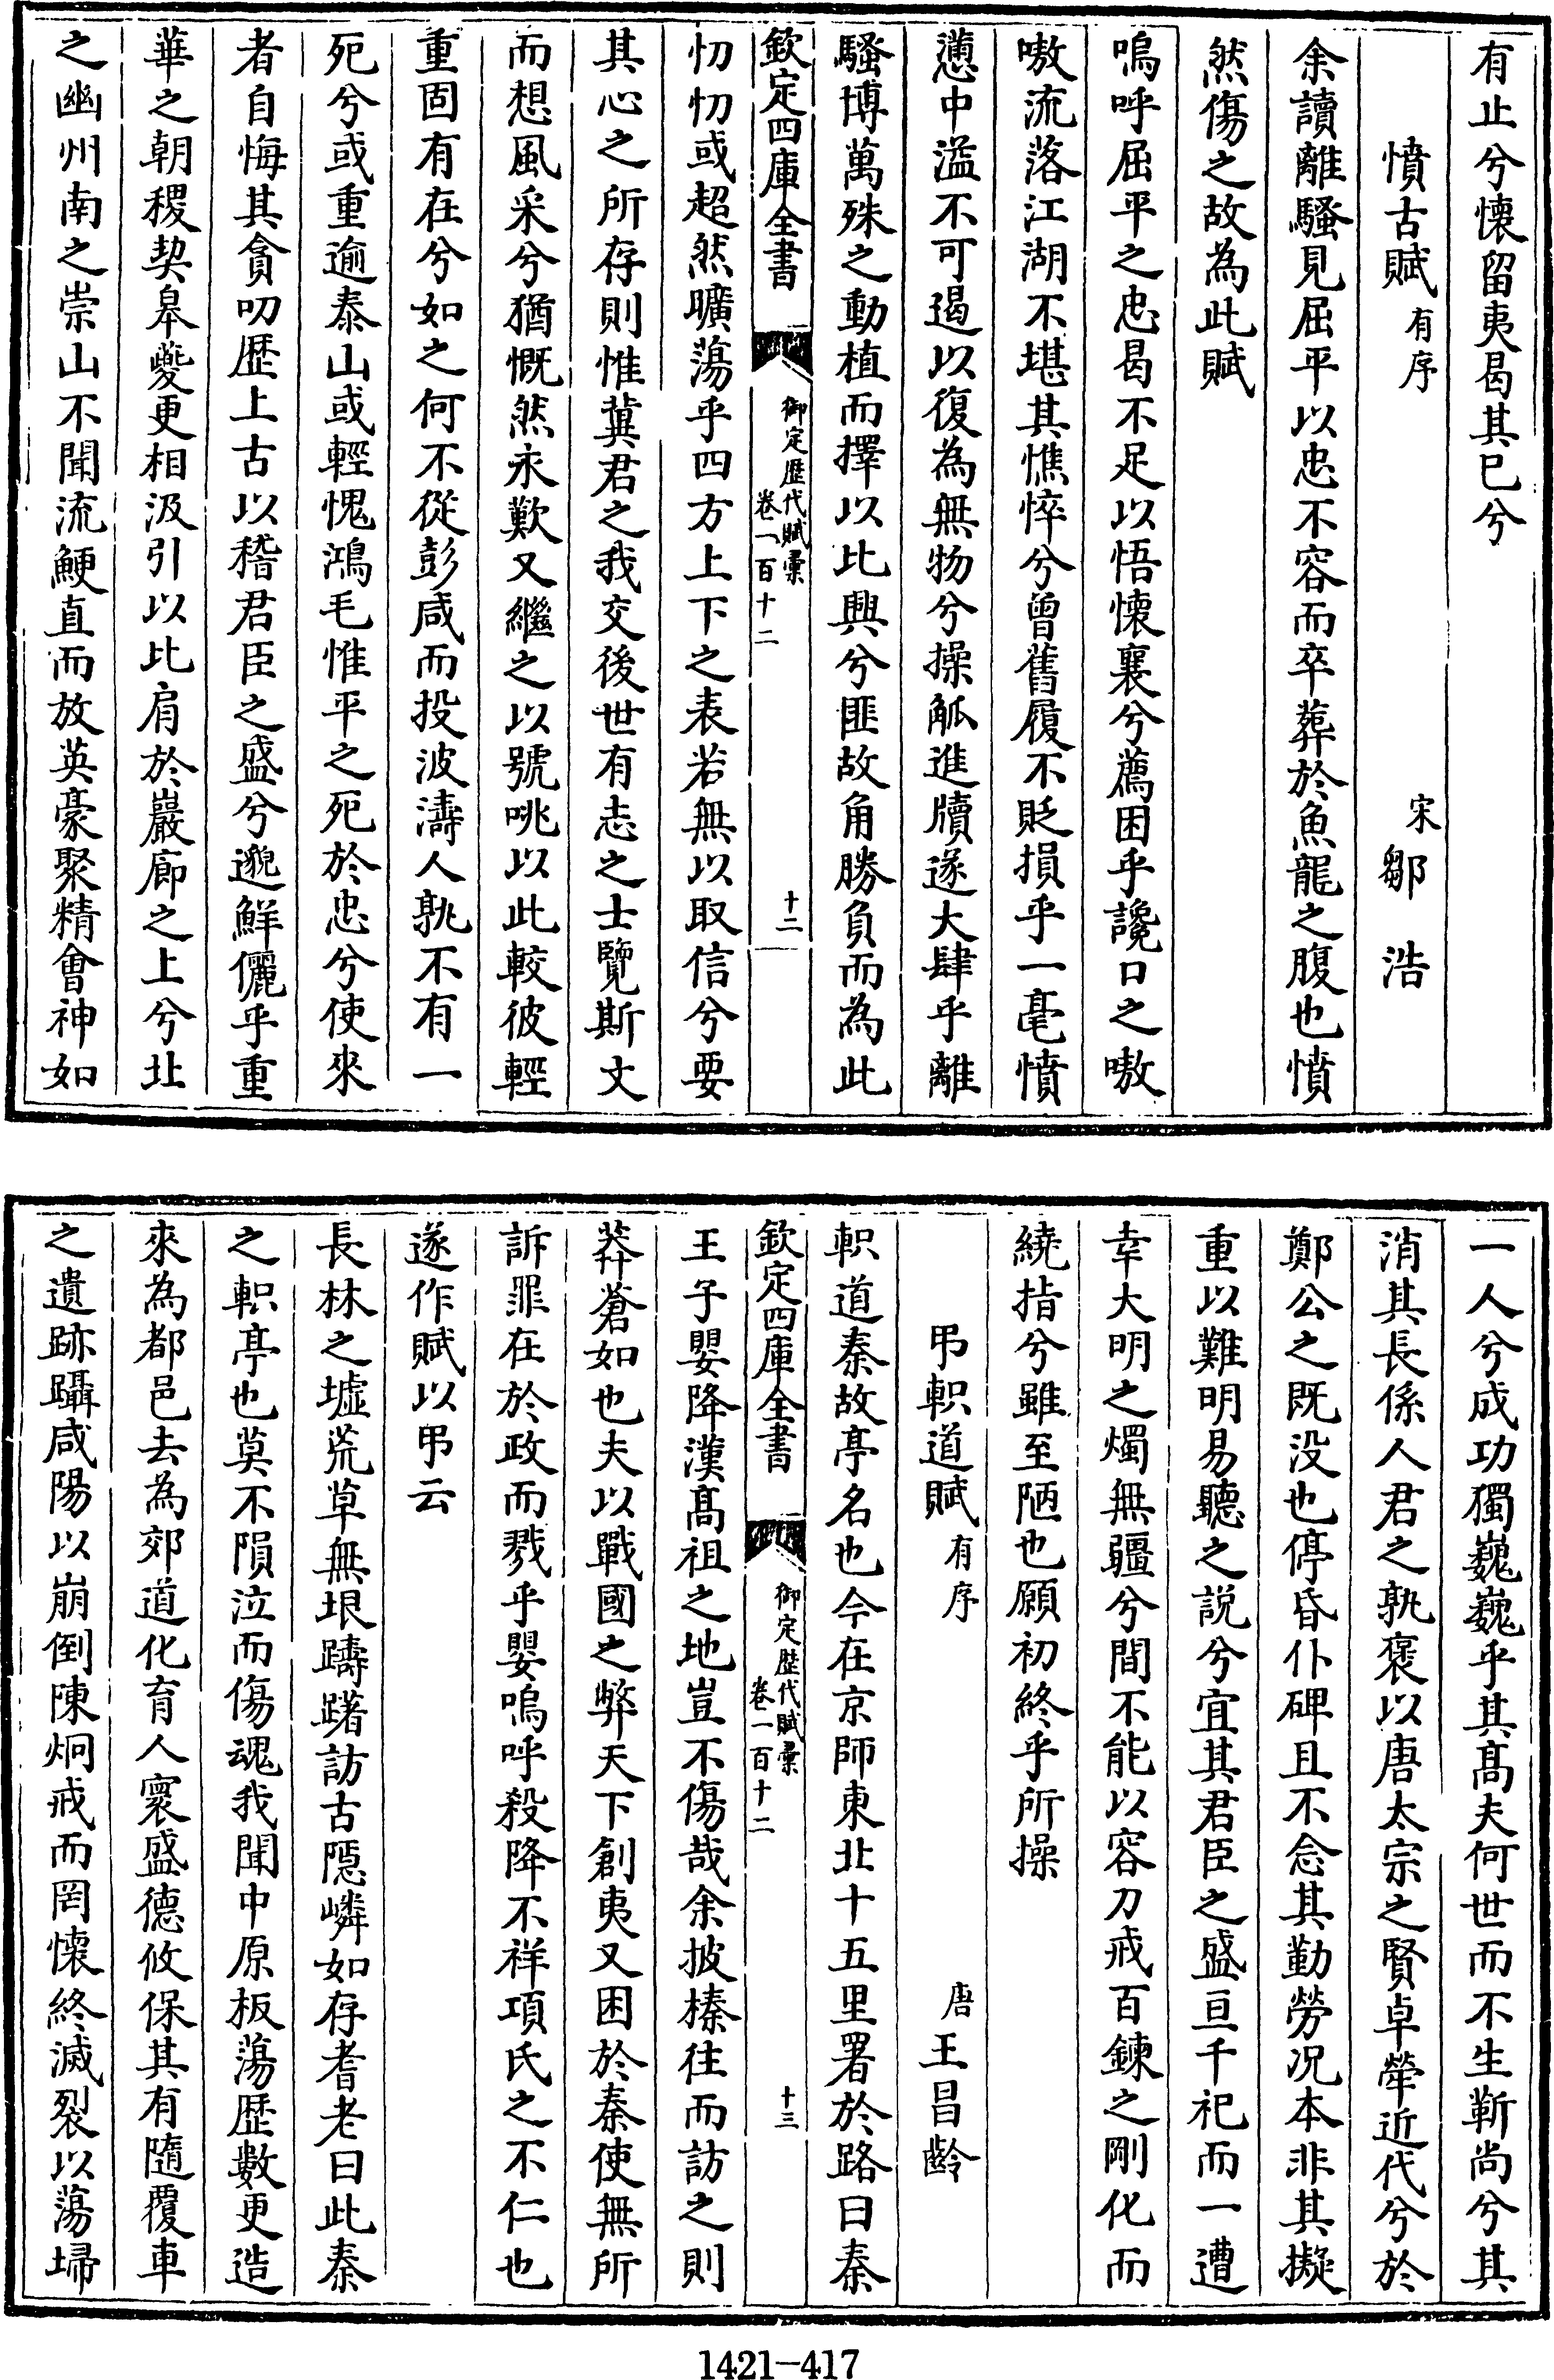 有止兮懷留夷曷其已兮
憤古賦有序　宋鄒浩
余讀離騷見屈平以忠不容而卒葬於魚龍之腹也憤
然傷之故為此賦
嗚呼屈平之忠曷不足以悟懷襄兮薦困乎讒口之嗷
嗷流落江湖不堪其憔悴兮曾舊履不貶損乎一毫憤
懣中溢不可遏以復為無物兮操觚進牘遂大肆乎離
騷博萬殊之動植而擇以比興兮匪故角勝負而為此
欽定四庫全書　御定歴代賦彙卷一百十二　十二
忉忉或超然曠蕩乎四方上下之表若無以取信兮要
其心之所存則惟冀君之我交後世有志之士覽斯文
而想風采兮猶慨然永歎又繼之以號咷以此較彼輕
重固有在兮如之何不從彭咸而投波濤人孰不有一
死兮或重逾泰山或輕愧鴻毛惟平之死於忠兮使來
者自悔其貪叨歴上古以稽君臣之盛兮邈鮮儷乎重
華之朝稷契皋夔更相汲引以比肩於巖廊之上兮北
之幽州南之崇山不聞流鯁直而放英豪聚精會神如
一人兮成功獨巍巍乎其髙夫何世而不生靳尚兮其
消其長係人君之孰襃以唐太宗之賢卓犖近代兮於
鄭公之既没也停昏仆碑且不念其勤勞况本非其擬
重以難明易聽之説兮宜其君臣之盛亘千祀而一遭
幸大明之燭無疆兮間不能以容刀戒百鍊之剛化而
繞指兮雖至陋也願初終乎所操
弔軹道賦有序　唐王昌齡
軹道秦故亭名也今在京師東北十五里署於路曰秦
欽定四庫全書　御定歴代賦彙卷一百十二　十三
王子嬰降漢髙祖之地豈不傷哉余披榛往而訪之則
莽蒼如也夫以戰國之弊天下創夷又困於秦使無所
訴罪在於政而戮乎嬰嗚呼殺降不祥項氏之不仁也
遂作賦以弔云
長林之墟荒草無垠躊躇訪古隱嶙如存耆老曰此秦
之軹亭也莫不隕泣而傷魂我聞中原板蕩歴數更造
來為都邑去為郊道化育人寰盛德攸保其有隨覆車
之遺跡躡咸陽以崩倒陳炯戒而罔懷終滅裂以蕩埽
1421-417